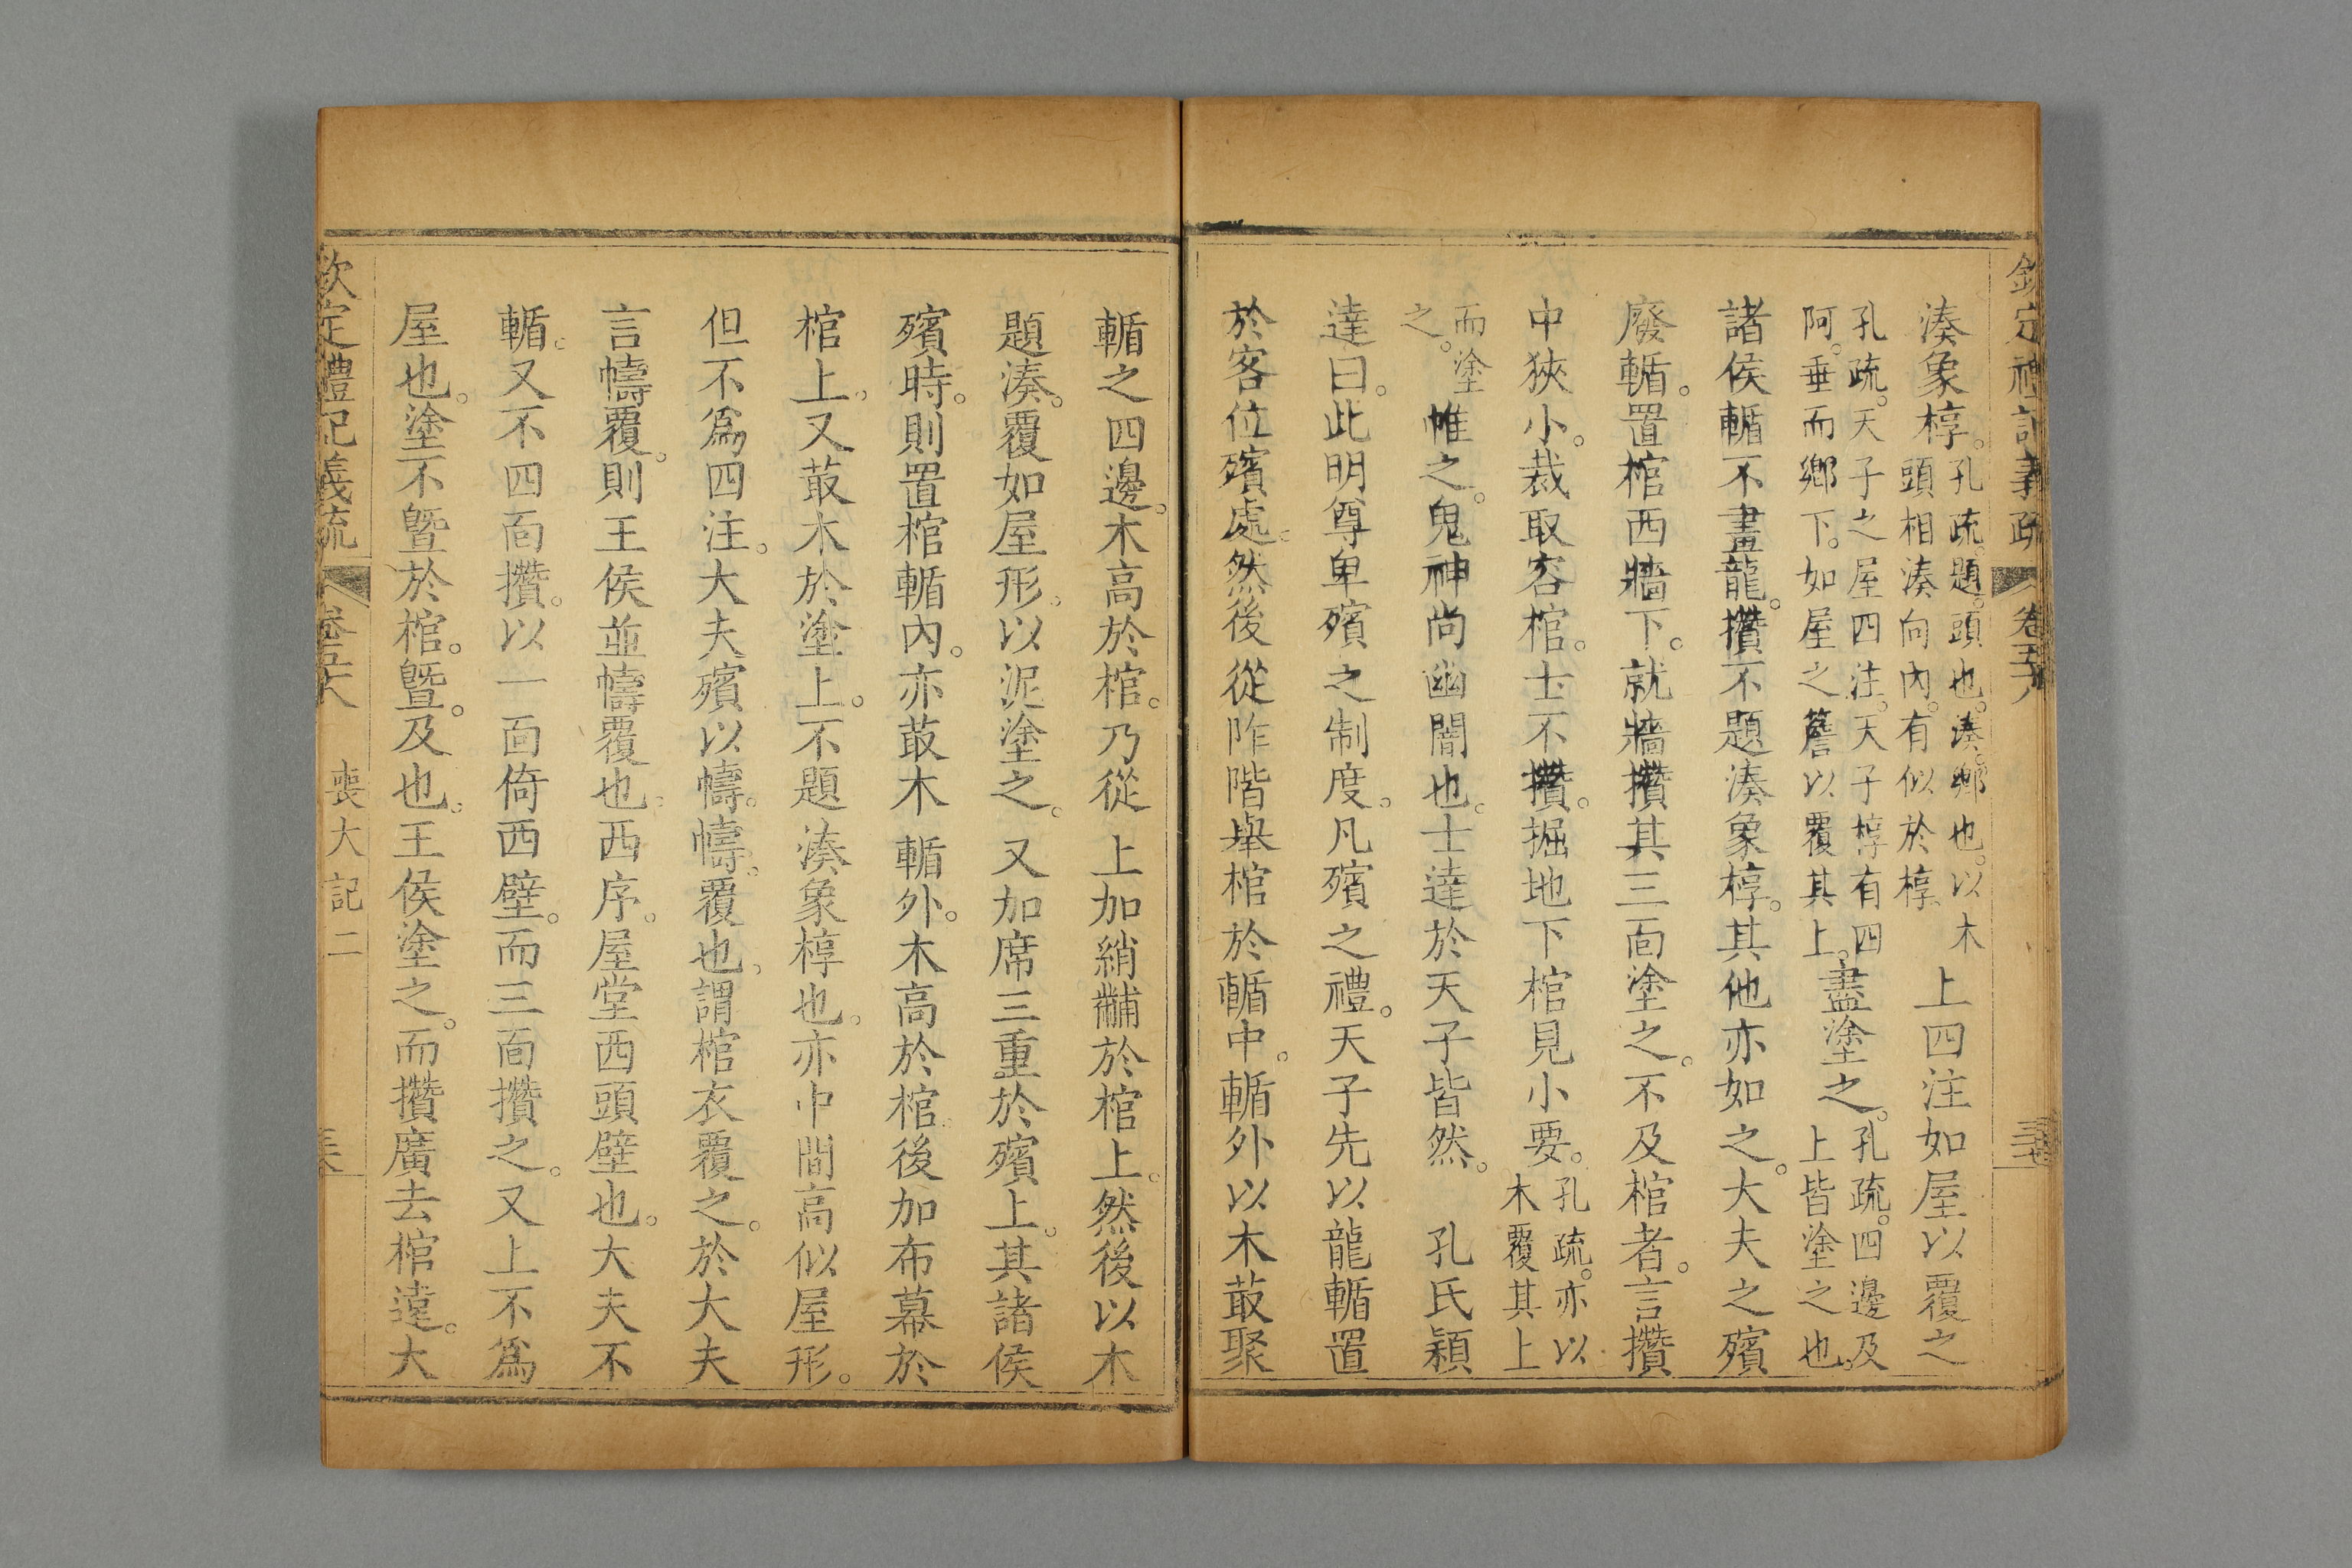 欽定禮記義疏 卷五十八
湊象椁。孔疏。題。頭也。湊。鄉也。以木頭相湊向內。有似於椁。上四注如屋以覆之
孔疏。天子之屋四注。天子椁有四阿。垂而鄉下。如屋之簷以覆其上。盡塗之。孔疏。四邊及上皆塗之也。
諸侯輴不畫龍。攢不題湊象椁。其他亦如之。大夫之殯
廢輴。置棺西牆下。就牆攢其三面塗之。不及棺者。言攢
中狹小。裁取容棺。士不攢。掘地下棺見小要。孔疏。亦以木覆其上
而塗之。帷之。鬼神尚幽闇也。士達於天子皆然。 孔氏穎
達曰。此明尊卑殯之制度。凡殯之禮。天子先以龍輴置
於客位殯處。然後從阼階舉棺於輴中。輴外以木菆聚
輴之四邊。木高於棺。乃從上加綃黼於棺上。然後以木
題湊。覆如屋形。以泥塗之。又加席三重於殯上。其諸侯
殯時。則置棺輴內。亦菆木輴外。木高於棺。後加布幕於
棺上。又菆木於塗上。不題湊象椁也。亦中間高似屋形。
但不爲四注。大夫殯以幬。幬。覆也。謂棺衣覆之。於大夫
言幬覆。則王侯並幬覆也。西序。屋堂西頭壁也。大夫不
輴。又不四面攢。以一面倚西壁。而三面攢之。又上不爲
屋也。塗不曁於棺。曁。及也。王侯塗之。而攢廣去棺遠。大
欽定禮記義疏 卷五十八 喪大記二